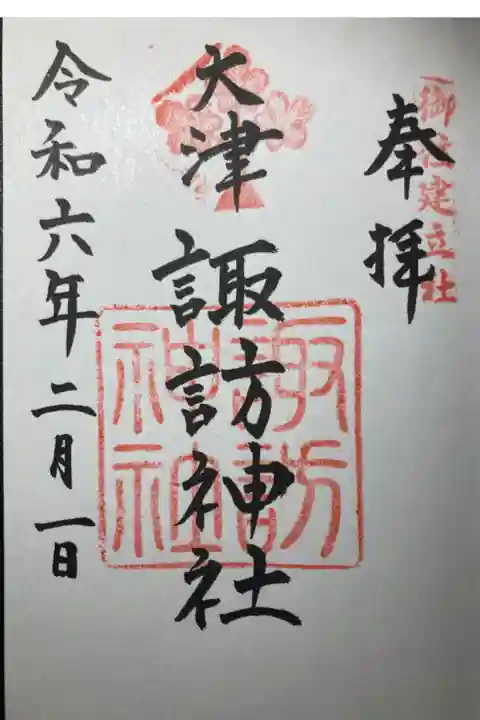 御柱建立社
奉拝
大津
諏訪神社
諏訪
神社
令和六年二月一日